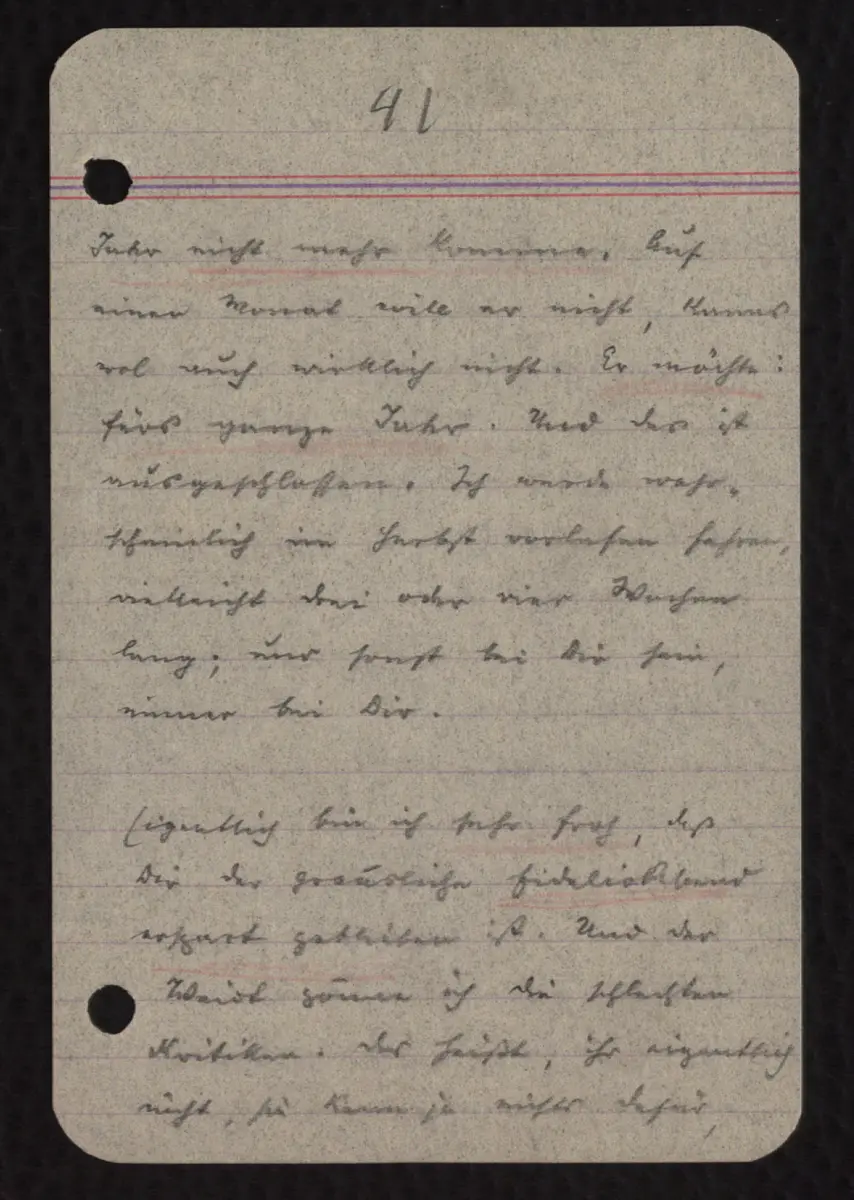 41
Jahr nicht mehr komme. Auf
einen Monat will er nicht, kanns
wol auch wirklich nicht. Er möchte:
fürs ganze Jahr. Und das ist
ausgeschlossen. Ich werde wahr-
scheinlich im Herbst vorlesen fahren,
vielleicht drei oder vier Wochen
lang; und sonst bei Dir sein,
immer bei Dir.
Eigentlich bin ich sehr froh, daß
Dir der grausliche Fidelioabend
erspart geblieben ist. Und der
Weidt gönne ich die schlechten
Kritiken. Das heißt, ihr eigentlich
nicht, sie kann ja nichts dafür,